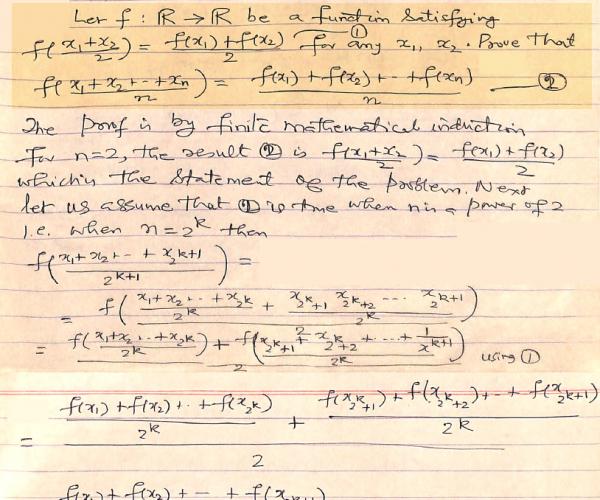 Let f : ℝ → ℝ be a function satisfying
f((x₁+x₂)/2) = (f(x₁)+f(x₂))/2 ① for any x₁, x₂. Prove that
f((x₁+x₂+--+xₙ)/n) = (f(x₁)+f(x₂)+--+f(xₙ))/n —— ②
The proof is by finite mathematical induction
For n=2, the result ② is f((x₁+x₂)/2) = (f(x₁)+f(x₂))/2
which is the statement of the problem. Next
let us assume that ② is true when n is a power of 2
i.e. when n = 2^k then
f((x₁+x₂+--+x_2^k+1)/2^(k+1)) =
= f(((x₁+x₂+..+x_2^k)/2^k + (x_2^k+1 x_2^k+2 --- x_2^k+1)/2^k)/2)
= (f((x₁+x₂+..+x_2^k)/2^k) + f((x_2^k+1 + x_2^k+2 + --+ 1/x^k+1)/2^k))/2 using ①
= ((f(x₁)+f(x₂)+..+f(x_2^k))/2^k + (f(x_2^k+1)+f(x_2^k+2)+--+f(x_2^k+1))/2^k)/2
f(x₁)+f(x₂)+--+f(x_2^k+1)